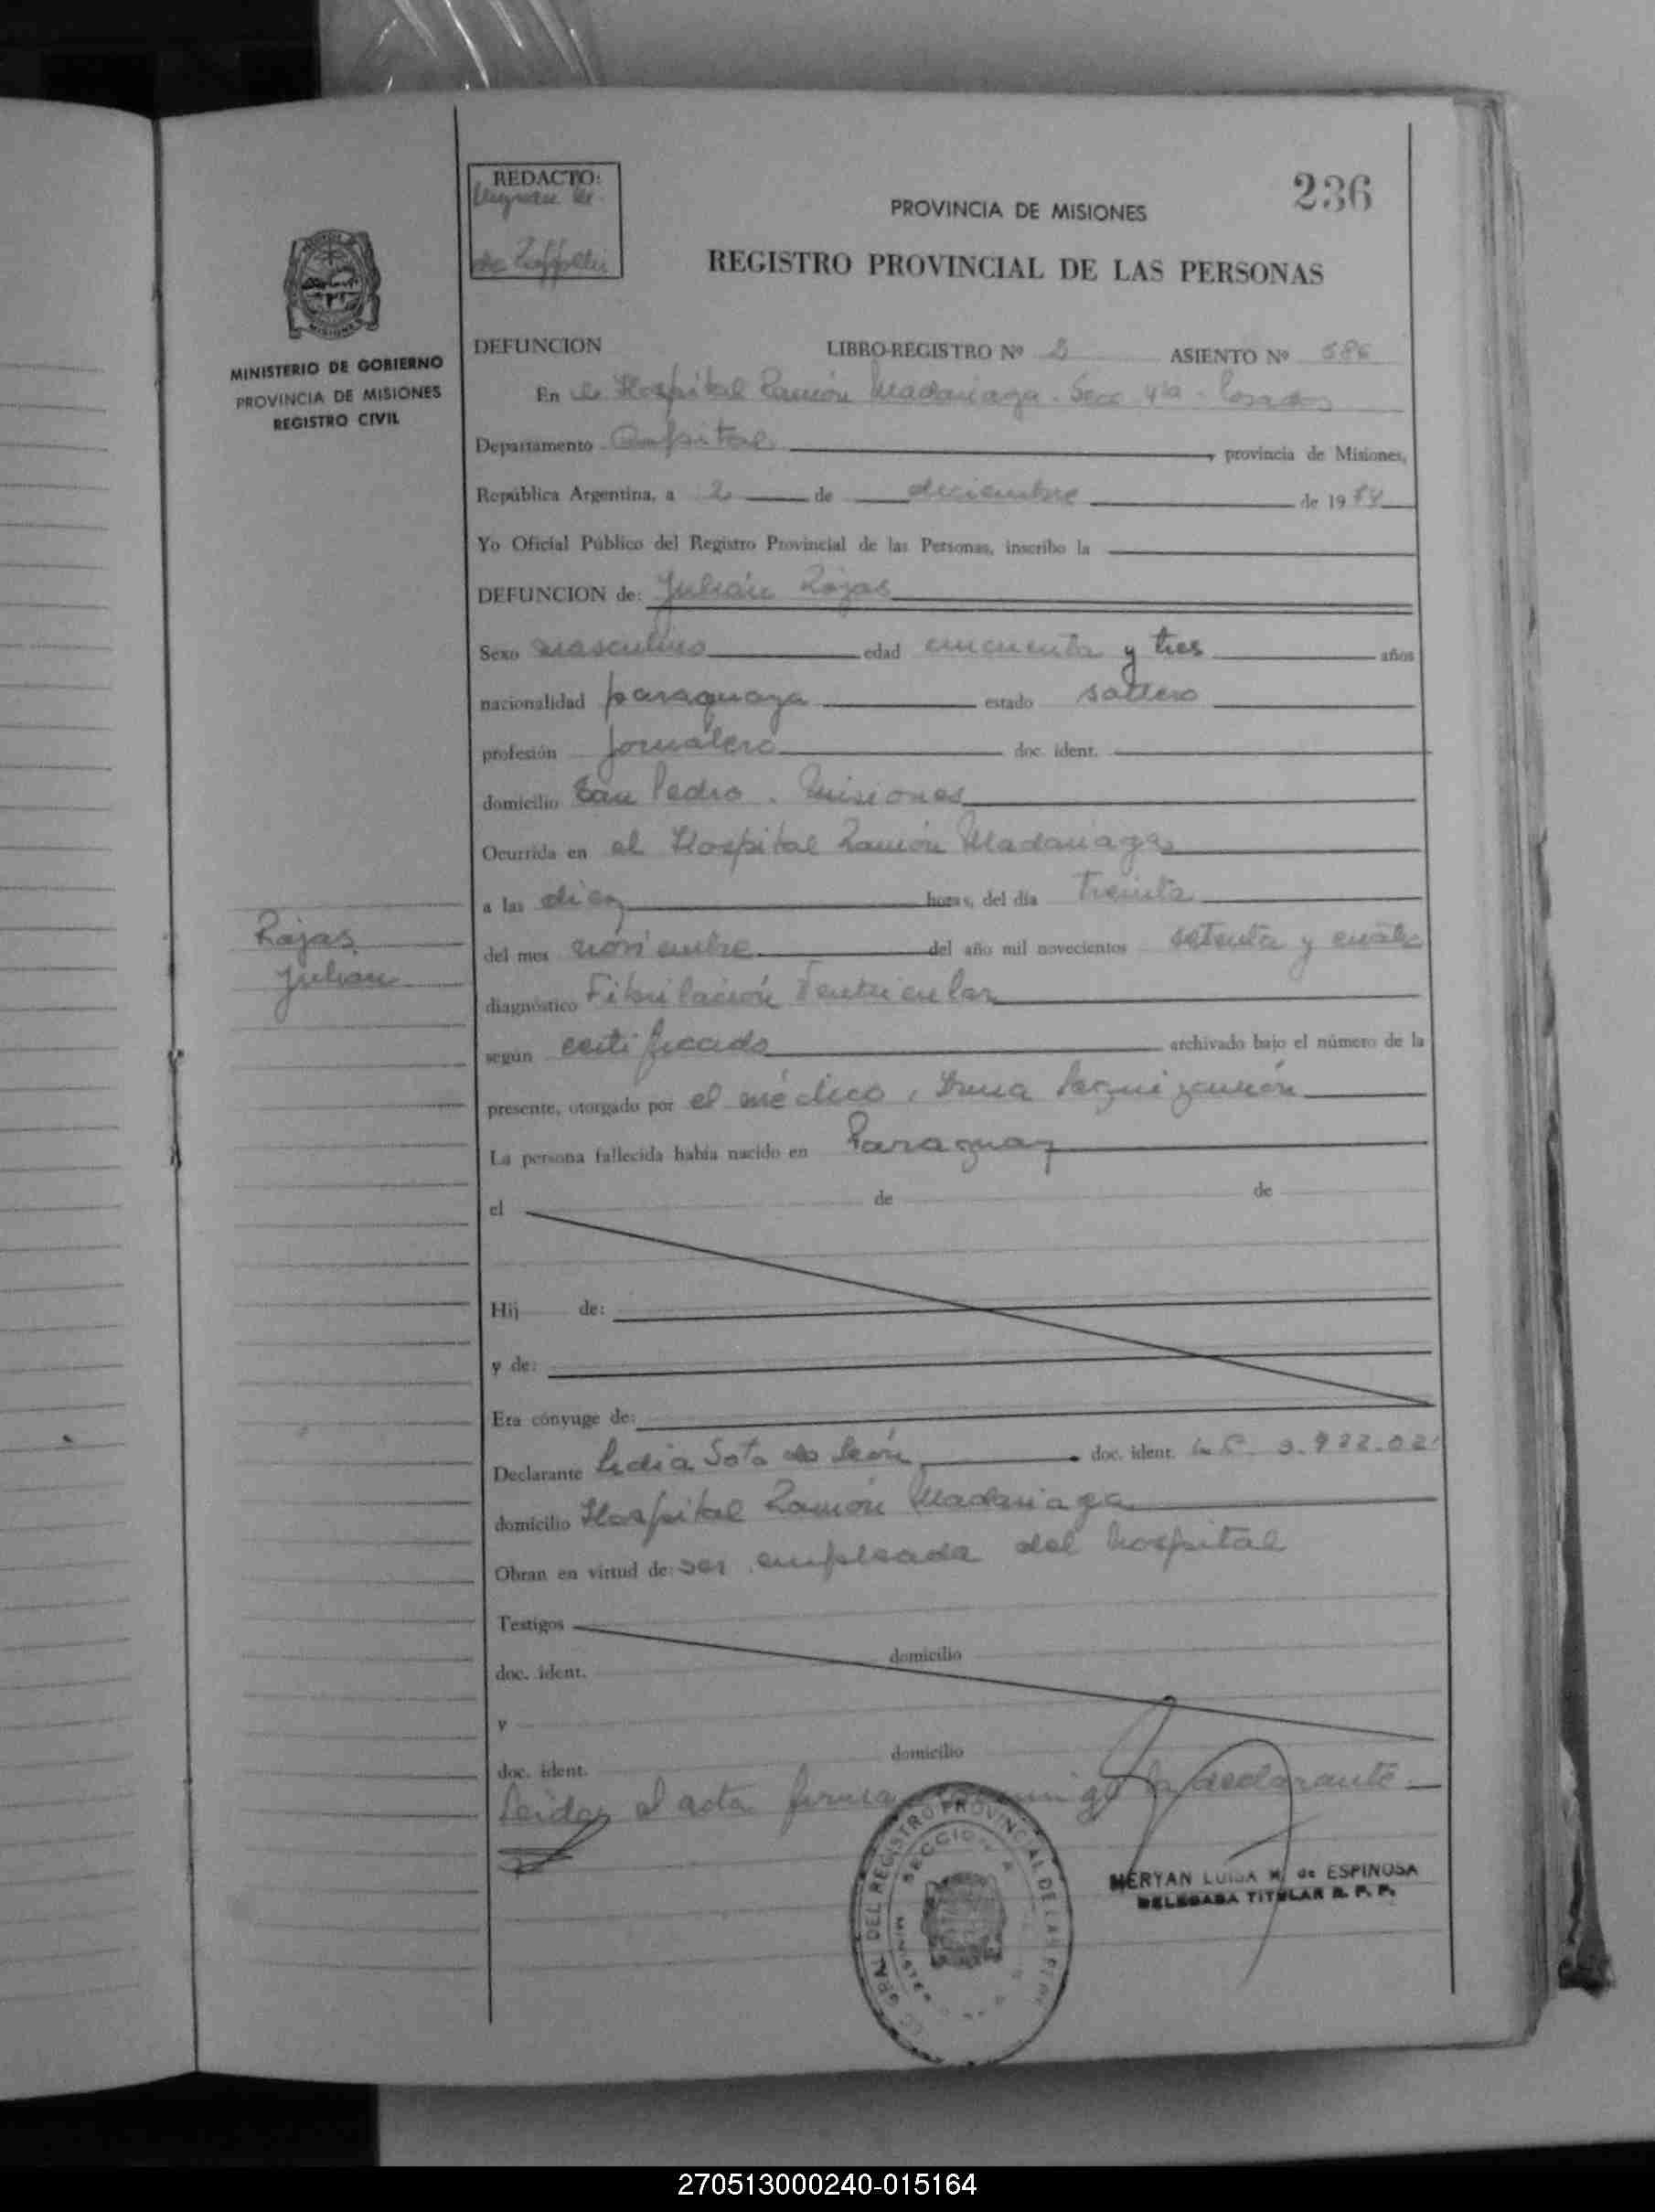 236
REDACTO:
de
PROVINCIA DE MISIONES
REGISTRO PROVINCIAL DE LAS PERSONAS
MINISTERIO DE GOBIERNO
PROVINCIA DE MISIONES
REGISTRO CIVIL
DEFUNCION LIBRO-REGISTRO Nº 3 ASIENTO Nº 586
En el Hospital Ramón Madariaga - Secc 4ta - Posadas
Departamento Capital, provincia de Misiones,
República Argentina, a 2 de diciembre de 1974
Yo Oficial Público del Registro Provincial de las Personas, inscribo la
DEFUNCION de: Julián Rojas
Sexo masculino edad cincuenta y tres años
nacionalidad paraguaya estado soltero
profesión jornalero doc. ident.
domicilio San Pedro. Misiones
Ocurrida en el Hospital Ramón Madariaga
a las diez horas, del día treinta
Rojas
Julian
del mes noviembre del año mil novecientos setenta y cuatro
diagnóstico Fibrilación Ventricular
según certificado archivado bajo el número de la
presente, otorgado por el médico, Irma
La persona fallecida había nacido en Paraguay
el de de
Hij de:
y de:
Era cónyuge de:
Declarante Lidia Soto de León doc. ident.
domicilio Hospital Ramón Madariaga
Obran en virtud de: ser empleada del hospital
Testigos
doc. ident. domicilio
y
doc. ident. domicilio
Leida el acta firma conmigo la declarante
GRAL DEL REGISTRO PROVINCIAL DE LAS
SECCIO
MERYAN LUISA M. de ESPINOSA
DELEGADA TITULAR R. P. P.
270513000240-015164